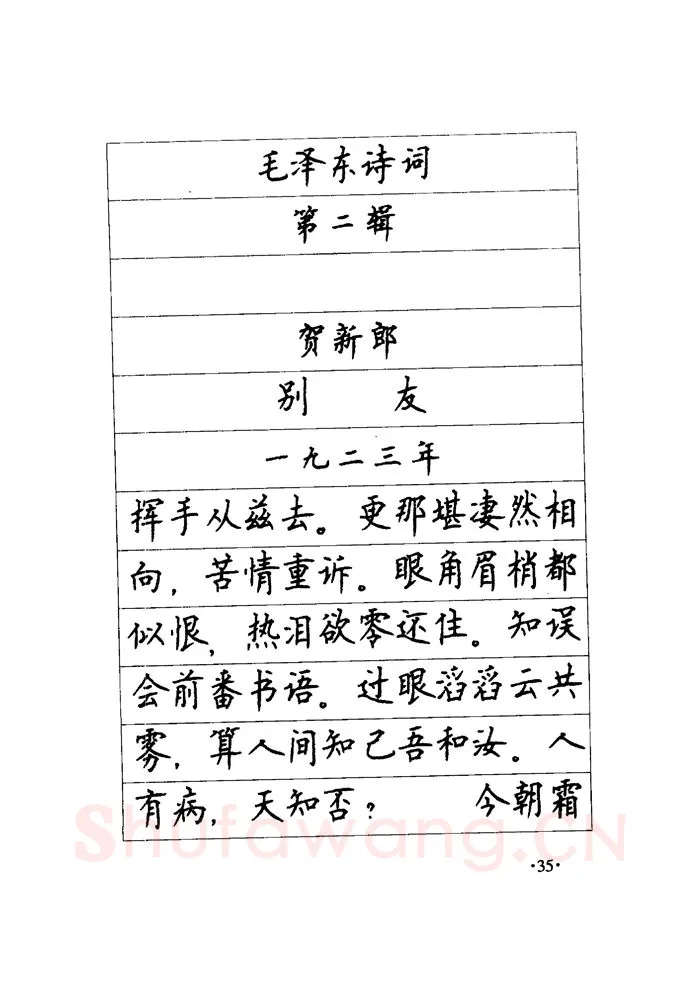 毛泽东诗词
第二辑
贺新郎
别 友
一九二三年
挥手从兹去。更那堪凄然相
向，苦情重诉。眼角眉梢都
似恨，热泪欲零还住。知误
会前番书语。过眼滔滔云共
雾，算人间知己吾和汝。人
有病，天知否？ 今朝霜
Shufawang.CN
·35·